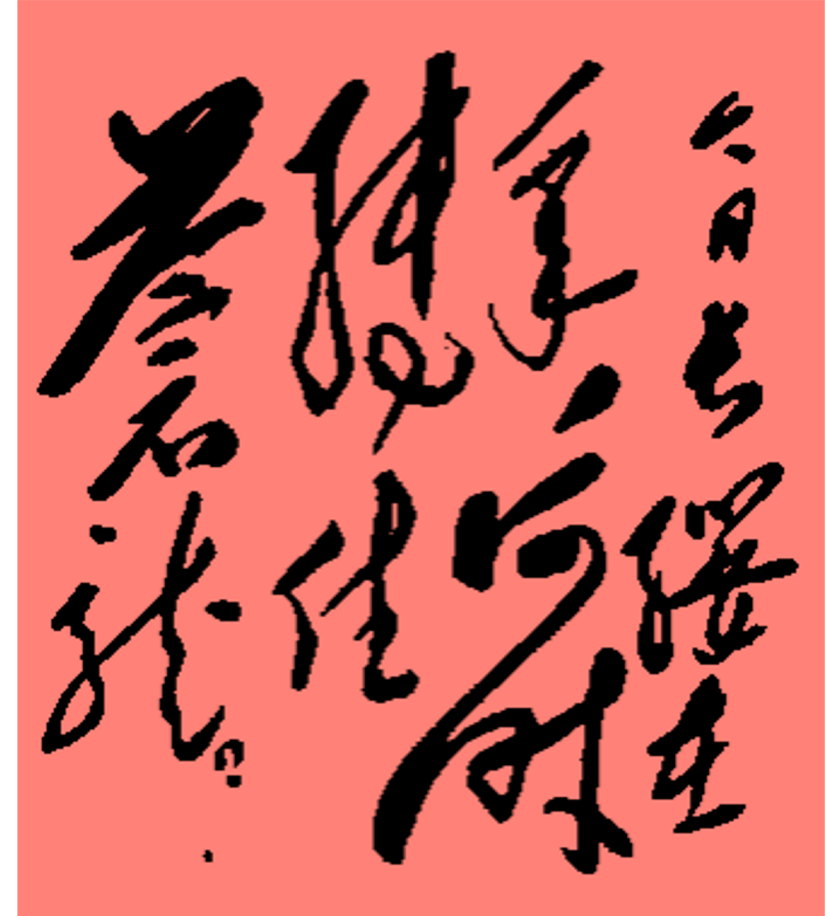 今日長纓在
手，何時
縛住
蒼龍？